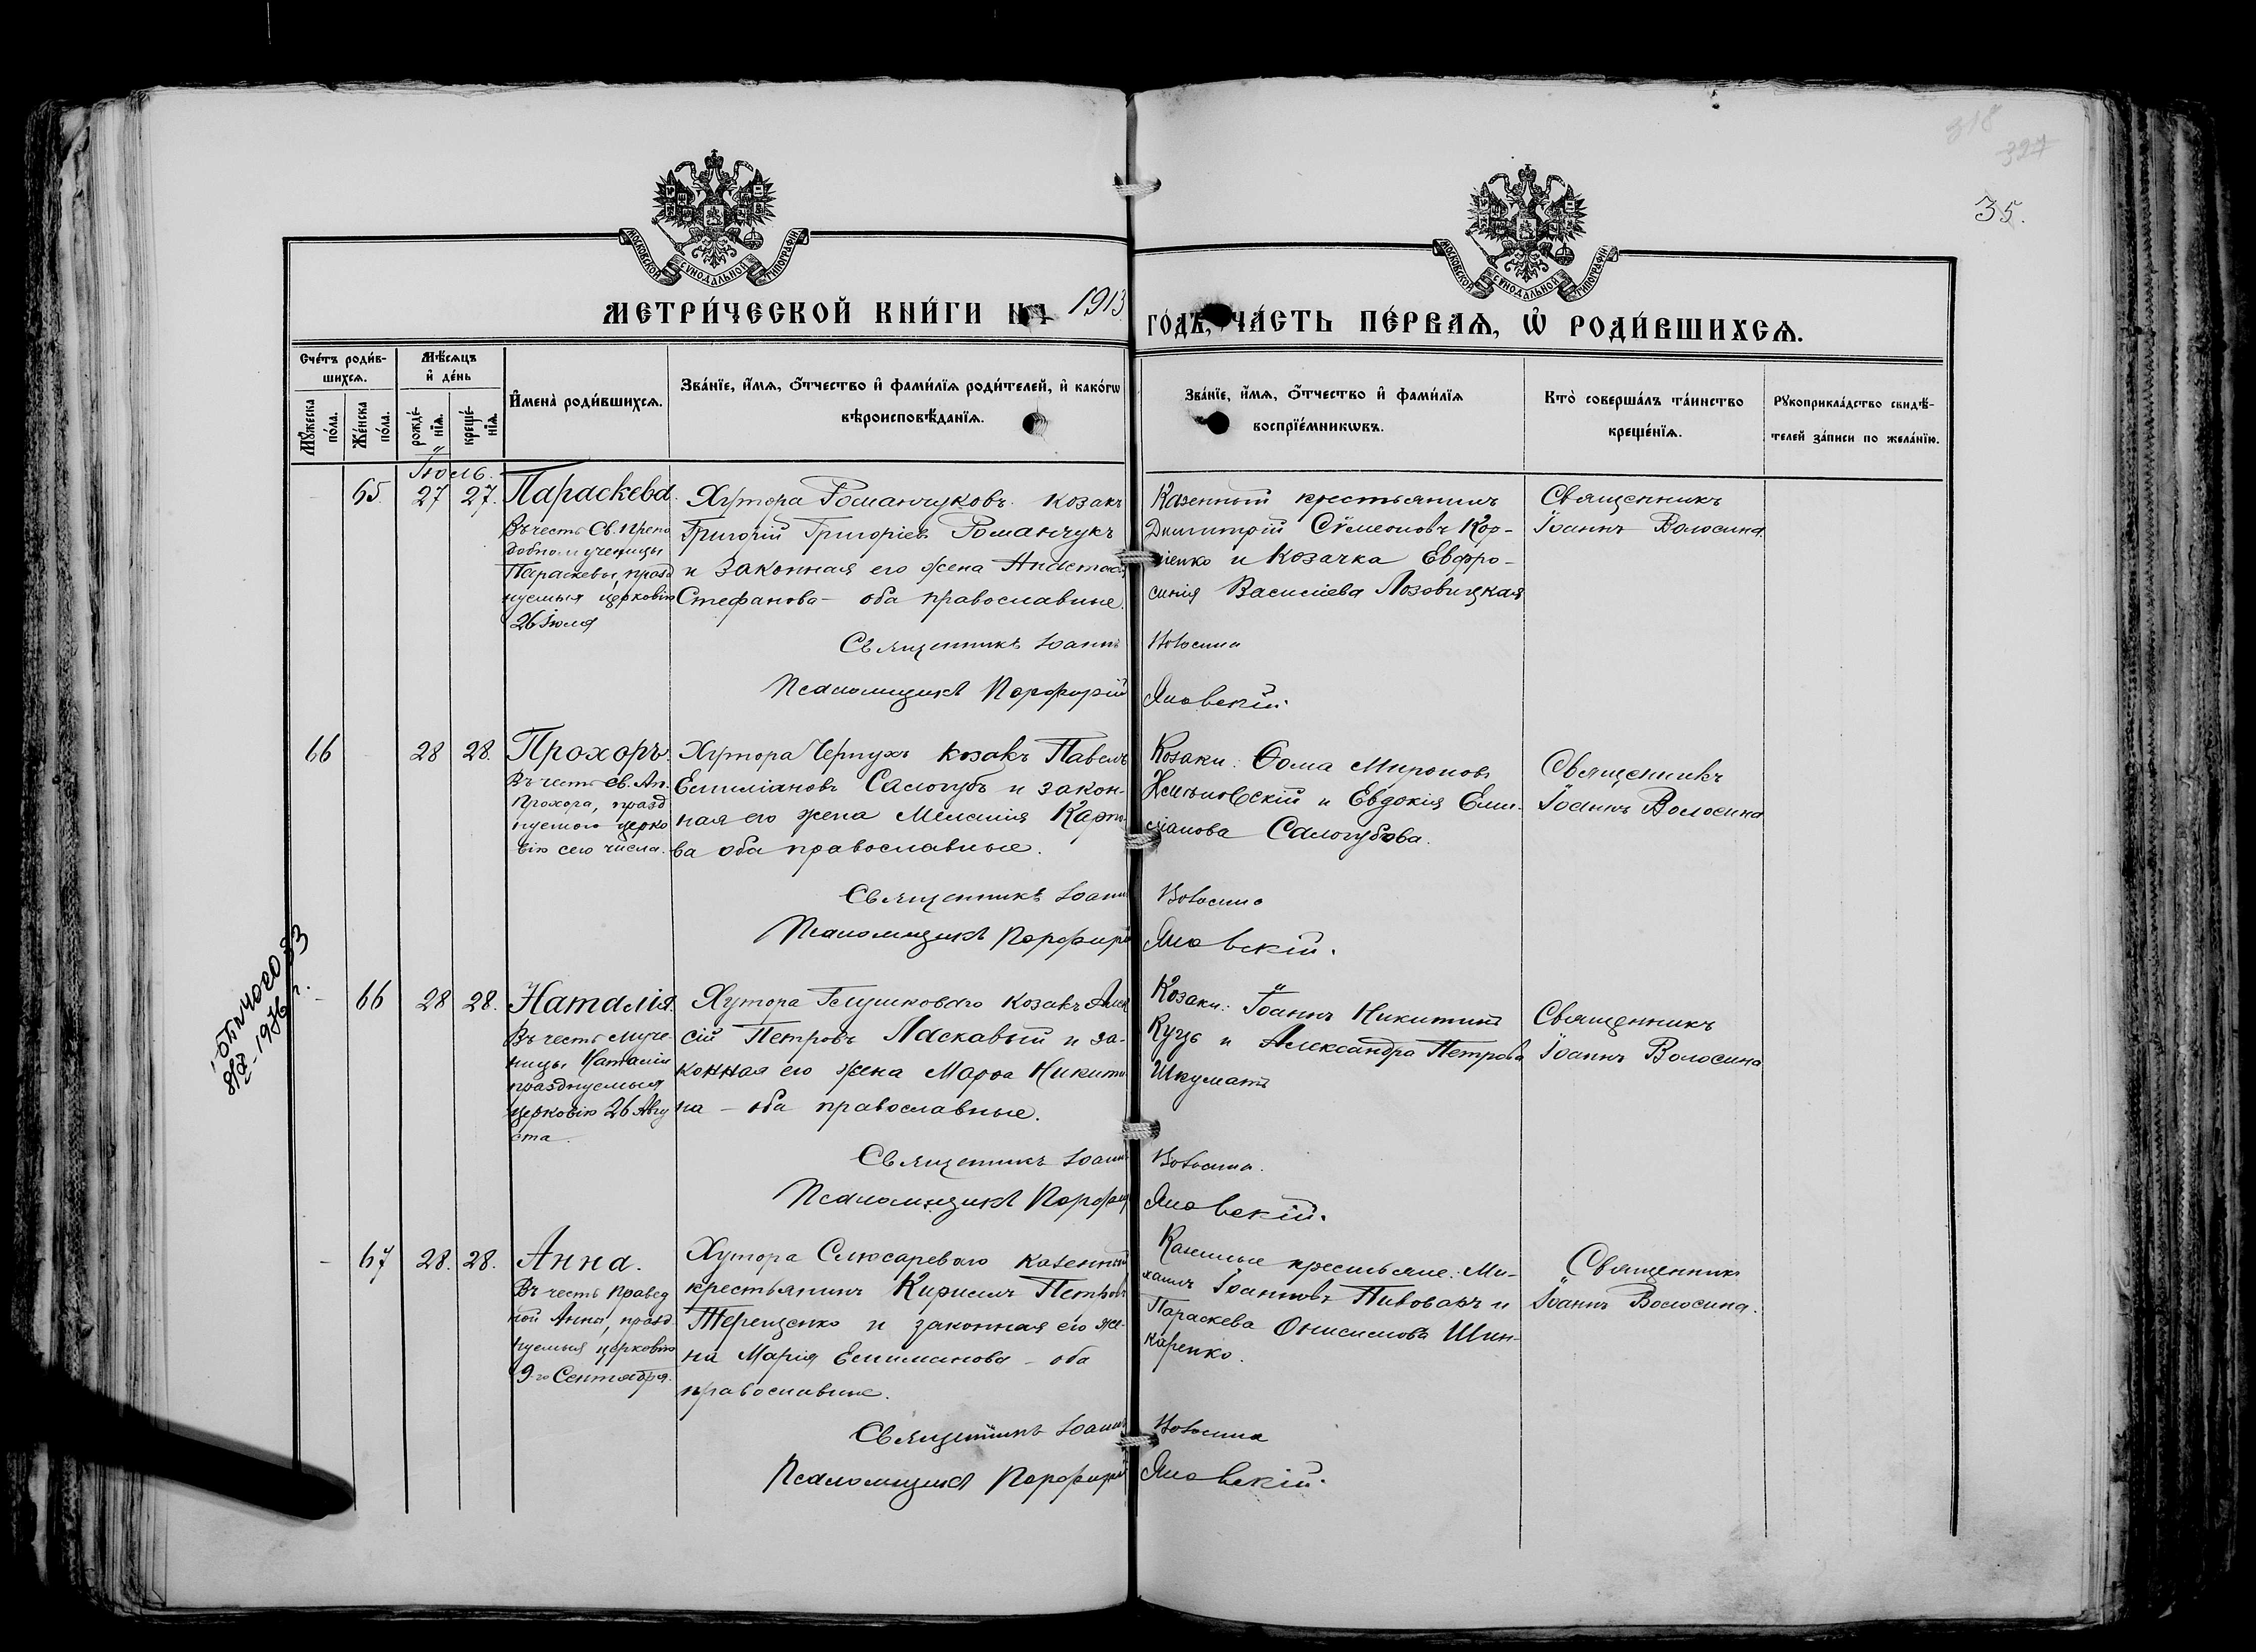 318
327
35.
МОСКОВСКОЙ СѴНОДАЛЬНОЙ ТИПОГРАФІИ
МОСКОВСКОЙ СѴНОДАЛЬНОЙ ТИПОГРАФІИ
МЕТРИ́ЧЕСКОЙ КНИ́ГИ НА 1913 ГО́ДЪ, ЧА́СТЬ ПЕ́РВАѦ, Ѡ҆ РОДИ́ВШИХСѦ.
Сче́тъ роди́в-
шихсѧ.
Мꙋ́жеска по́ла.
Же́нска по́ла.
Мѣ́сѧцъ и҆ де́нь
рожде́-нїѧ.
креще́-нїѧ.
И҆мена̀ роди́вшихсѧ.
Зва́нїе, и҆́мѧ, ѻ҆́тчество и҆ фами́лїѧ роди́телей, и҆ како́гѡ
вѣроисповѣ́данїѧ.
Зва́нїе, и҆́мѧ, ѻ҆́тчество и҆ фами́лїѧ
воспрїе́мникѡвъ.
Кто̀ соверша́лъ та́инство
креще́нїѧ.
Рꙋкоприкла́дство свидѣ́-
телей за́писи по жела́нїю.
Іюль.
65. 27 27. Параскева.
Въ честь Св. Препо
добном ученицы
Параскевы, празд
нуемыя церковію
26 Іюля
Хутора Романчуковъ козакъ
Григорій Григоріев Романчукъ
и законная его жена Анастасія
Стефанова – оба православные.
Казенный крестьянинъ
Димитрій Сѵмеоновъ Кор-
ніенко и козачка Евфро-
синія Василіева Лозовицкая
Священникъ
Іоаннъ Волосина.
Священникъ Іоаннъ Волосина
Псаломщикъ Порфирій Яновскій.
66 28 28. Прохоръ.
Въ честь св. Ап.
Прохора, празд
нуемого церко
вію сего числа.
Хутора Чернухъ козакъ Павелъ
Емиліановъ Салогубъ и закон-
ная его жена Меланія Карпо-
ва оба православные.
Козаки: Ѳома Мироновъ
и Евдокія Еми-
ліанова Салогубова.
Священникъ
Іоаннъ Волосина
Священникъ Іоаннъ Волосина
Псаломщикъ Порфирій Яновскій.
1976 г.
– 66 28 28. Наталія.
Въ честь муче-
ницы Наталіи
празднуемыя
церковію 26 Авгу
ста.
Хутора Глушковаго козакъ Алек
сій Петровъ Ласкавый и за-
конная его жена Марѳа Никити-
на – оба православные.
Козаки: Іоаннъ Никитинъ
Куць и Александра Петрова
Шкуматъ
Священникъ
Іоаннъ Волосина
Священникъ Іоаннъ Волосина.
Псаломщикъ Порфирій Яновскій.
– 67 28. 28. Анна.
Въ честь Правед
ной Анны, празд
нуемыя церковію
9-го Сентября.
Хутора Слюсареваго казенный
крестьянинъ Кириллъ Петровъ
Терещенко и законная его же-
на Марія Емиліанова – оба
православные.
Казенные крестьяне: Ми-
хаилъ Іоанновъ Пивоваръ и
Параскева Онисимова Шин-
каренко.
Священникъ
Іоаннъ Волосина.
Священникъ Іоаннъ Волосина
Псаломщикъ Порфирій Яновскій.